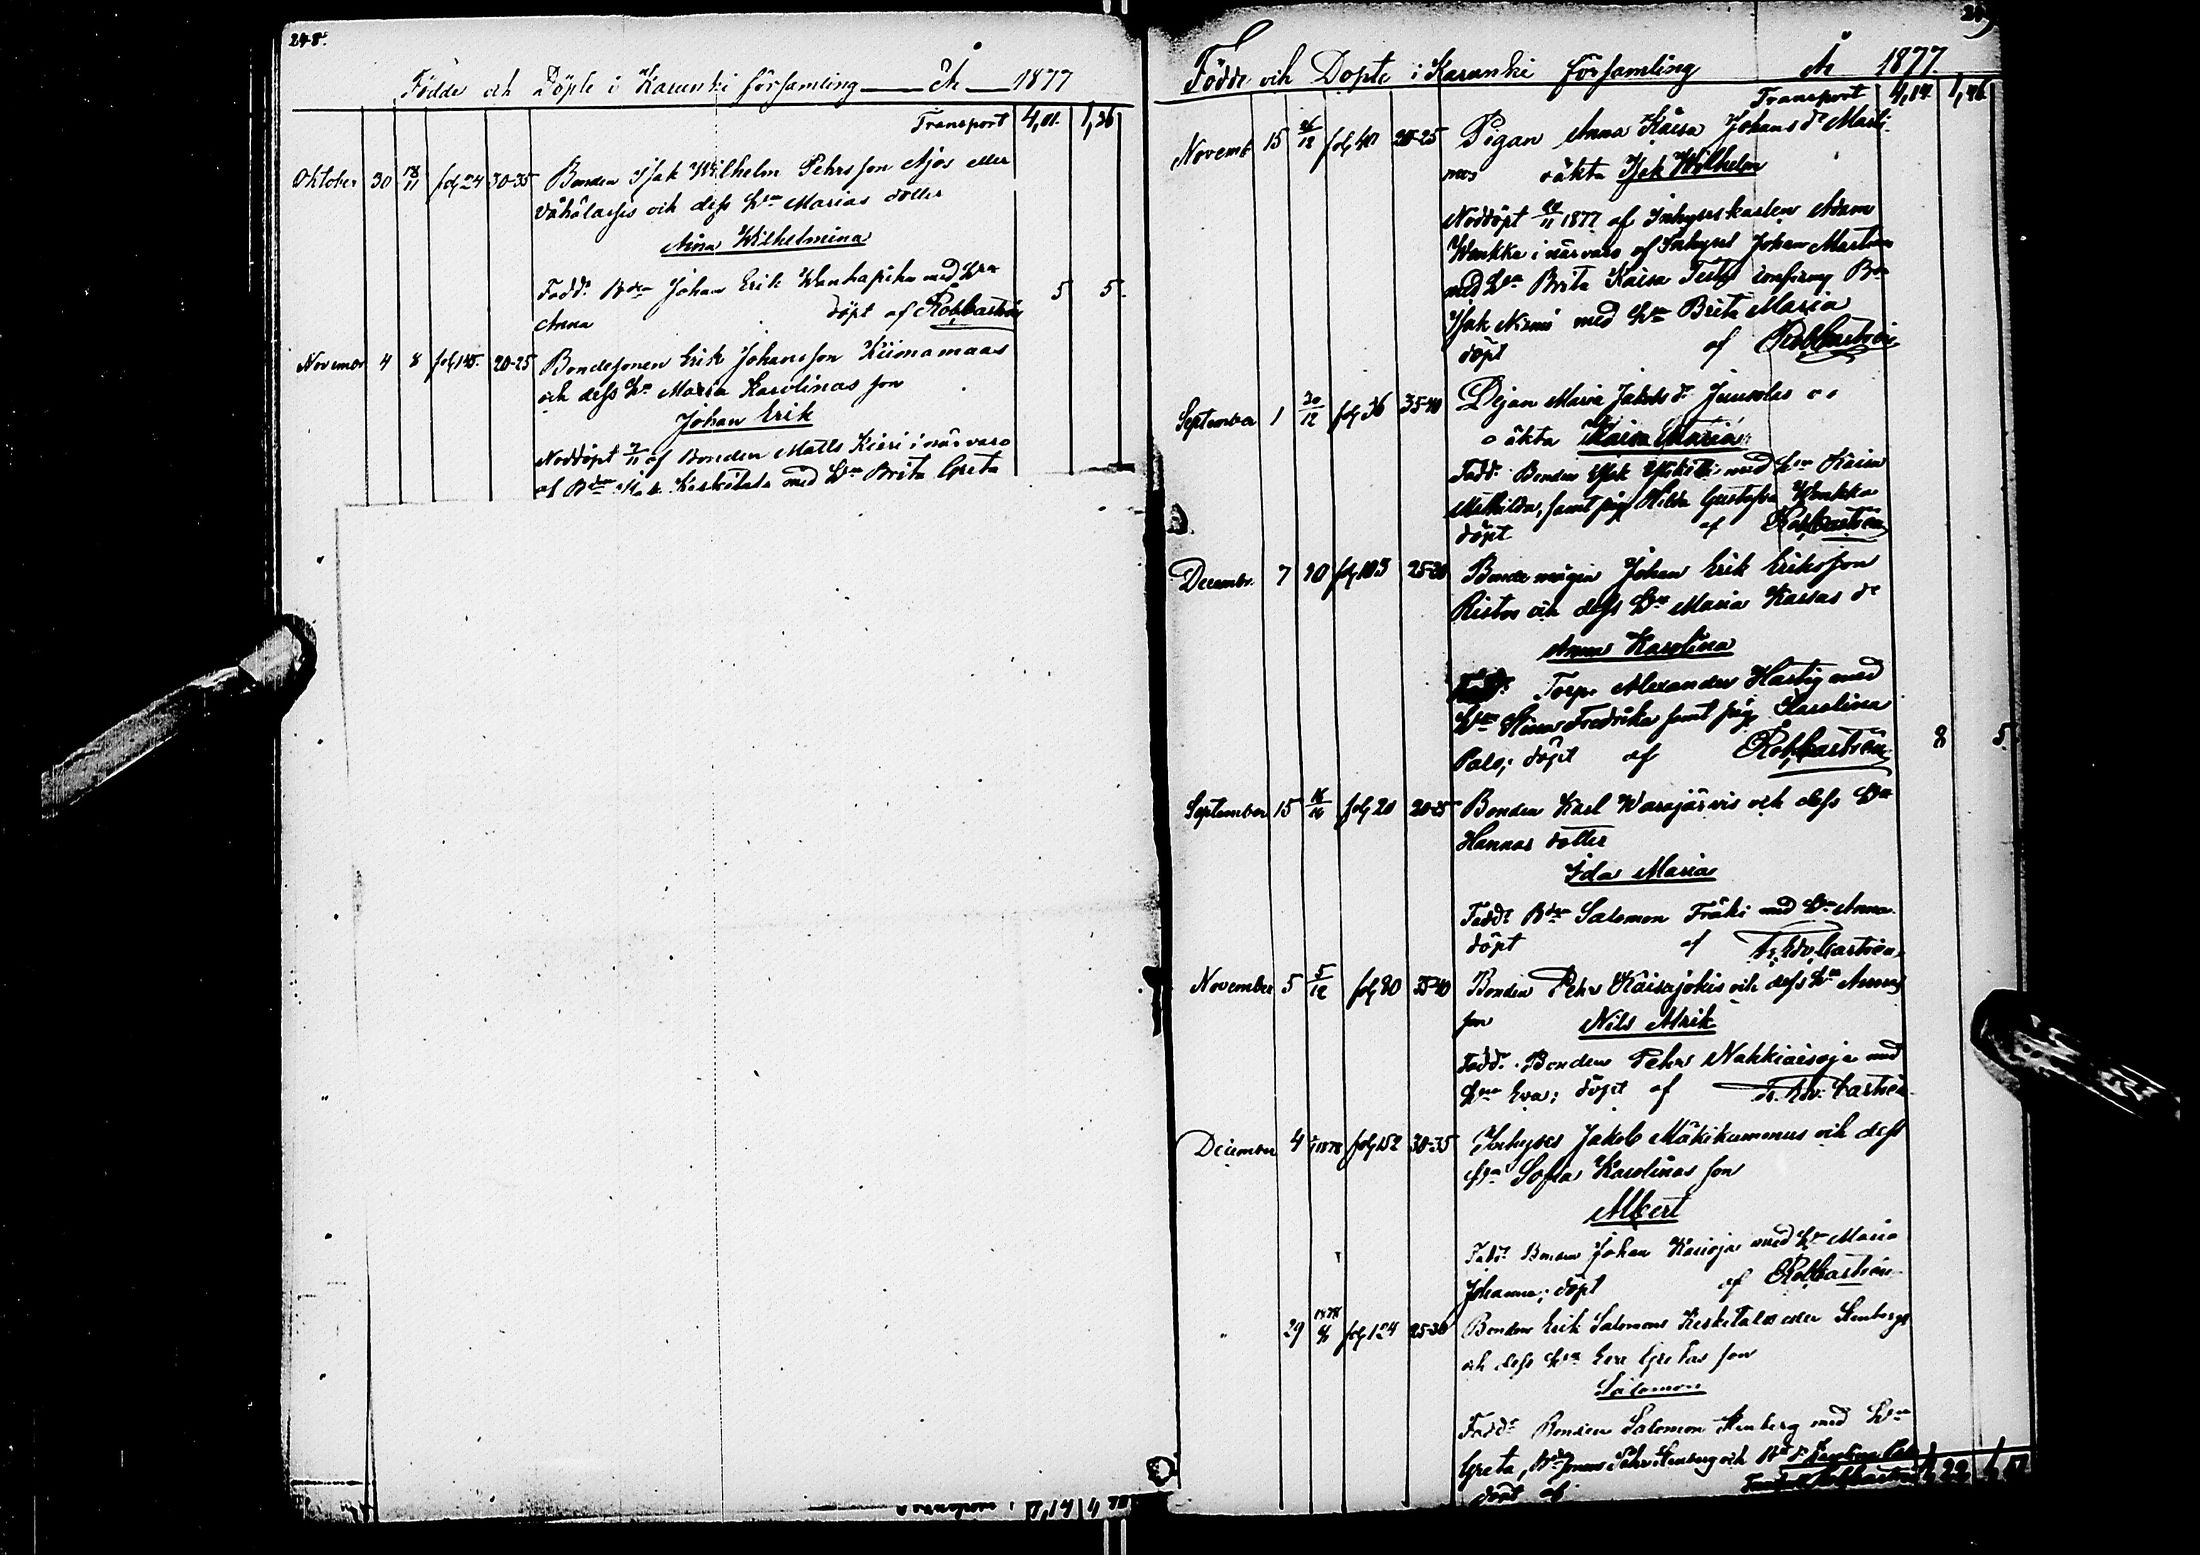 248.
Födde och Döpte i Karunki församling År 1877
Transport 4,01. 1,36
Oktober 30 18/11 fol 24 30-35 Bonden Isak Wilhelm Pehrsson Ajos eller
och dess Hu Marias dotter
Wilhelmina
Fadd. Bdn Johan Erik Wanhapiha med Hu
Anna döpt af Rob Castrén 5 5.
November 4 8 fol 145. 20-25 Bondesonen Erik Johansson Kiimamaas
och dess Hu Maria Karolinas son
Johan Erik
Nöddöpt 7/11 af Bonden Matts Kieri i närvaro
af Bdn Isak Keskitalo med Hu Brita Greta
Födde och Döpte i Karunki församling År 1877.
Transport 4,14. 1,46
Novemb. 15 26/12 fol 20-25 Pigan Anna Kaisa Johans dr Marti-
mos oäkta Isak Wilhelm
Nöddöpt 20/11 1877 af Inhyseskarlen Adam
Wankka i närvaro af Inhyses Johan
med Hu Brita Kaisa confirm Bdn
Isak Niemi med Hu Brita Maria
döpt af Rob Castrén
September 1 30/12 fol 36 35-40 Pigan Maria Jakobs dr Junsolas
oäkta Kaisa Maria
Fadd. Bonden Isak med Hu Kaisa
Mathilda, samt pig Hilda Gustafva Wankka
döpt af Rob Castrén
Decembr. 7 10 fol 103 25-30 Bondemågen Johan Erik Eriksson
Ristos och dess Hu Maria Kaisas dr
Anna Karolina
Fadd. Torp. Alexander Hartig med
Hu Fredrika samt pig Karolina
Palo; döpt af Rob Castrén 8 5.
September 15 16/10 fol 20 20-25 Bonden Karl Waarajärvis och dess Hu
Hannas dotter
Ida Maria
Fadd. Bdn Salomon Fräki med Hu Anna
döpt af Fr. Edv. Castrén
November 5 5/12 fol 80 35-40 Bonden Pehr Kaisajokis och dess Hu Annas
son Nils Alrik
Fadd. Bonden Pehr Nahkiaisoja med
Hu Eva; döpt af Fr. Edv. Castrén
December 4 1878 fol 152 30-35 Inhyses Jakob Mäkikummus och dess
Hu Sofia Karolinas son
Albert
Fadd. Bonden Johan Karioja med Hu Maria
Johanna; döpt af Rob Castrén
" 29 1878 fol 124 25-30 Bonden Erik Salomons Keskitalos eller Stenbergs
och dess Hu Eva Gretas son
Salomon
Fadd. Bonden Salomon Stenberg med Hu
Greta, Bdesonen Pehr Stenberg och Karolina
döpt af Rob Castrén